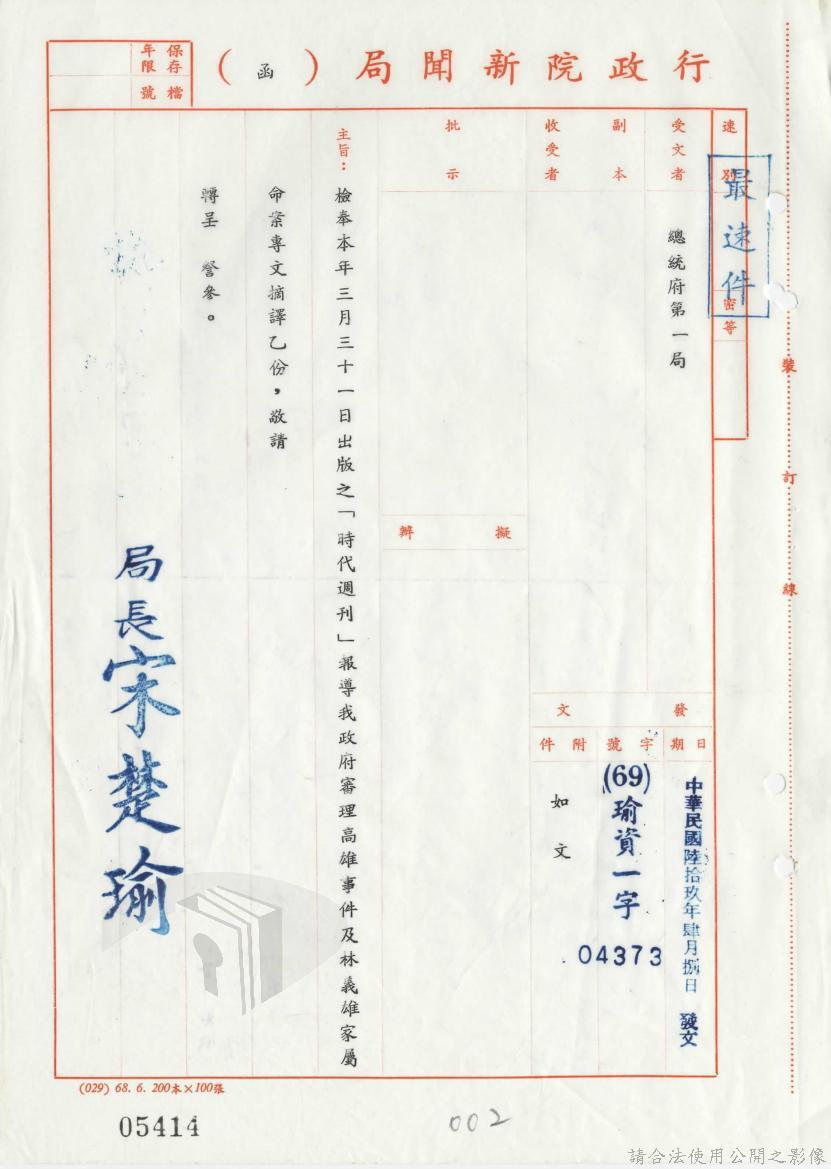 行政院新聞局（函）
保存年限
檔號
速別
最速件
密等
受文者
總統府第一局
副本收受者
批示
擬辦
發文
日期
中華民國陸拾玖年肆月捌日發文
字號
(69)瑜資一字
04373
附件
如文
主旨：檢奉本年三月三十一日出版之「時代週刊」報導我政府審理高雄事件及林義雄家屬
命案專文摘譯乙份，敬請
轉呈 詧參。
局長宋楚瑜
裝訂線
(029) 68. 6. 200本×100張
05414
002
請合法使用公開之影像